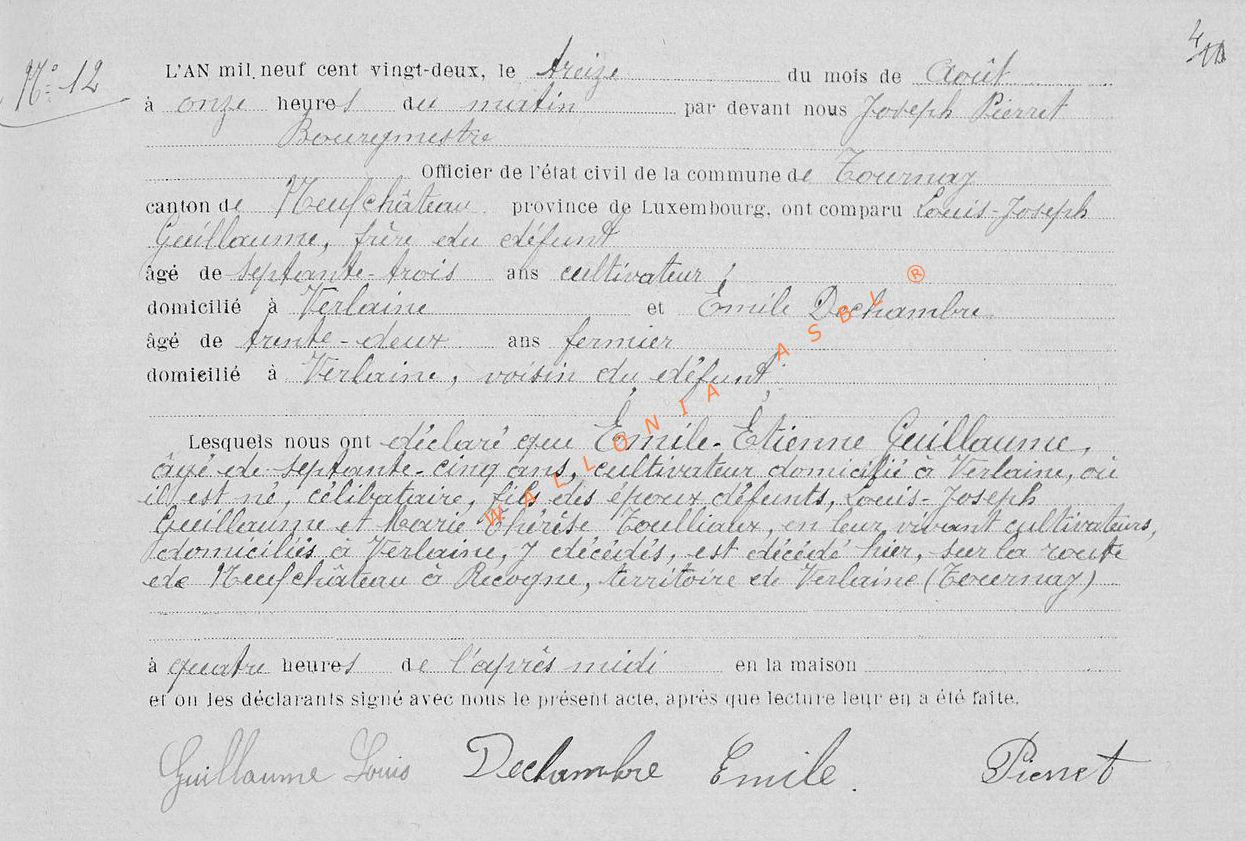 Nº 12
L'AN mil neuf cent vingt-deux, le treize du mois de Août
à onze heures du matin par devant nous Joseph Pierret
Bourgmestre
Officier de l'état civil de la commune de Tournay
canton de Neufchâteau province de Luxembourg, ont comparu Louis-Joseph
Guillaume, frère du défunt
âgé de septante-trois ans cultivateur,
domicilié à Verlaine et Emile Dechambre
âgé de trente-deux ans fermier
domicilié à Verlaine, voisin du défunt,
Lesquels nous ont déclaré que Emile-Etienne Guillaume,
âgé de septante-cinq ans, cultivateur domicilié à Verlaine, où
il est né, célibataire, fils des époux défunts, Louis-Joseph
Guillaume et Marie Thérèse Toulliaux, en leur vivant cultivateurs,
domiciliés à Verlaine, y décédés, est décédé hier, sur la route
de Neufchâteau à Recogne, territoire de Verlaine (Tournay)
à quatre heures de l'après midi en la maison
et on les déclarants signé avec nous le présent acte, après que lecture leur en a été faite.
Guillaume Louis Dechambre Emile. Pierret
WALLONIA ASBL ®